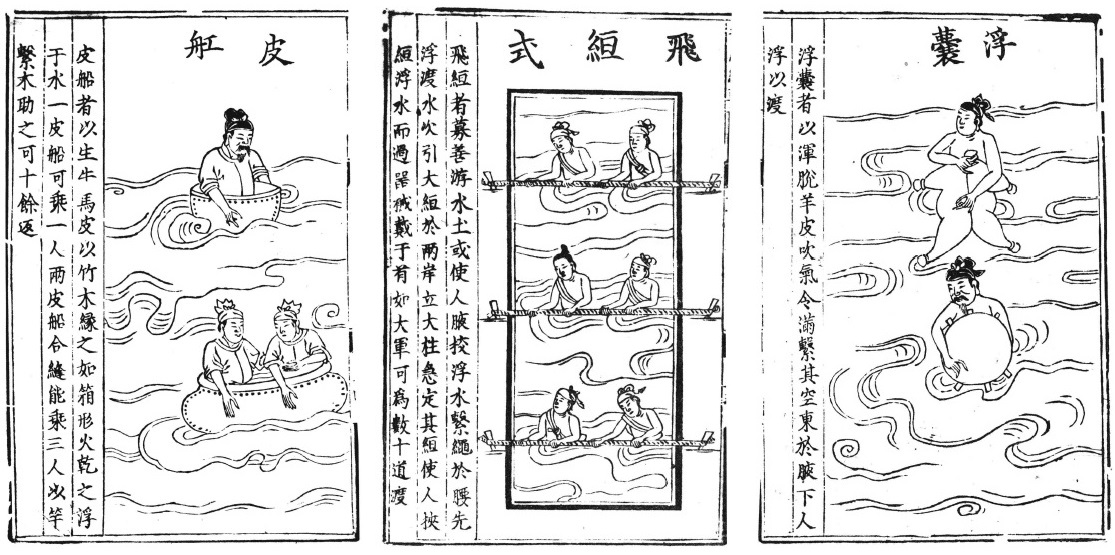 浮囊
浮囊者以渾脫羊皮吹氣令滿繫其空東於腋下人
浮以渡
飛絙式
飛絙者募善游水土或使人腋挍浮水繫繩於腰先
浮渡水次引大絙於兩岸立大柱急定其絙使人挾
絙浮水而過器械戴于首如大軍可為數十道渡
皮舡
皮船者以生牛馬皮以竹木緣之如箱形火乾之浮
于水一皮船可乘一人兩皮船合縫能乘三人以竿
繫木助之可十餘返